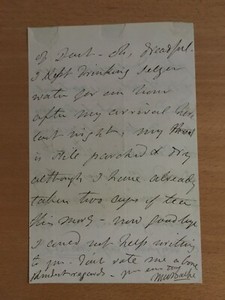 of Dust - Oh, dreadful.
I kept drinking Selzer
water for an hour
after my arrival here
last night, my throat
is still parched & dry
although I have already
taken two cups of tea
this morng - now good bye
I could not help writing
to you - Don't vote me a bore
kindest regards -